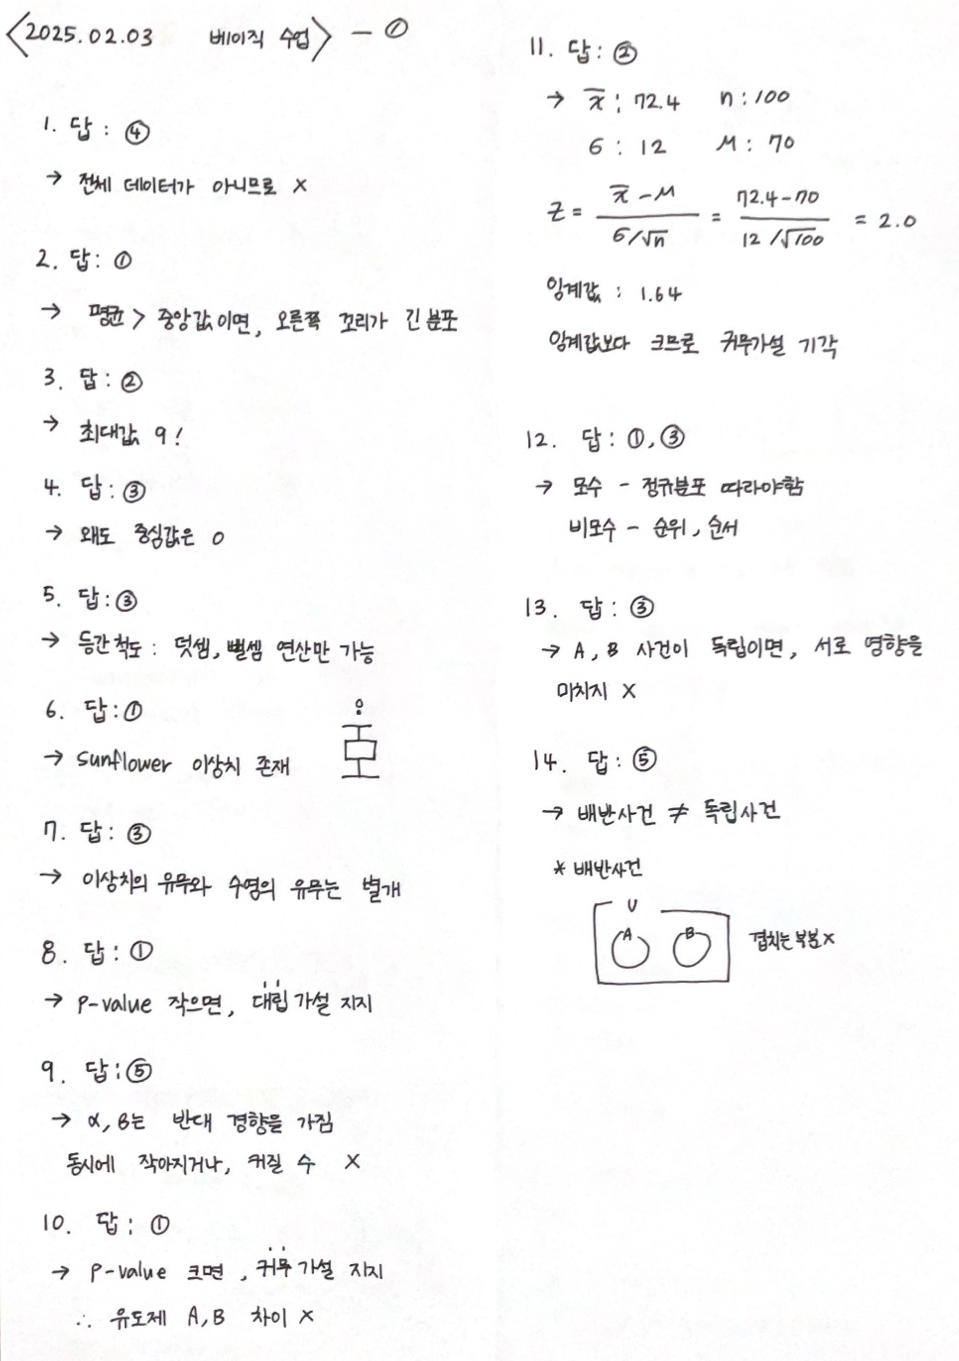 <2025.02.03 베이직 수업> - ①
1. 답 : ④
→ 전체 데이터가 아니므로 X
2. 답 : ①
→ 평균 > 중앙값이면, 오른쪽 꼬리가 긴 분포
3. 답 : ②
→ 최대값 9!
4. 답 : ③
→ 왜도 중심값은 0
5. 답 : ③
→ 등간척도 : 덧셈, 뺄셈 연산만 가능
6. 답 : ①
→ Sunflower 이상치 존재
7. 답 : ③
→ 이상치의 유무와 수염의 유무는 별개
8. 답 : ①
→ P-value 작으면, 대립가설 지지
9. 답 : ⑤
→ α, β는 반대 경향을 가짐
동시에 작아지거나, 커질 수 X
10. 답 : ①
→ P-value 크면, 귀무가설 지지
∴ 유도제 A, B 차이 X
11. 답 : ②
→ x̄ : 72.4 n : 100
σ : 12 μ : 70
Z = (x̄ - μ) / (σ/√n) = (72.4-70) / (12/√100) = 2.0
임계값 : 1.64
임계값보다 크므로 귀무가설 기각
12. 답 : ①, ③
→ 모수 - 정규분포 따라야함
비모수 - 순위, 순서
13. 답 : ③
→ A, B 사건이 독립이면, 서로 영향을
미치지 X
14. 답 : ⑤
→ 배반사건 ≠ 독립사건
* 배반사건
U
A B 겹치는 부분 X